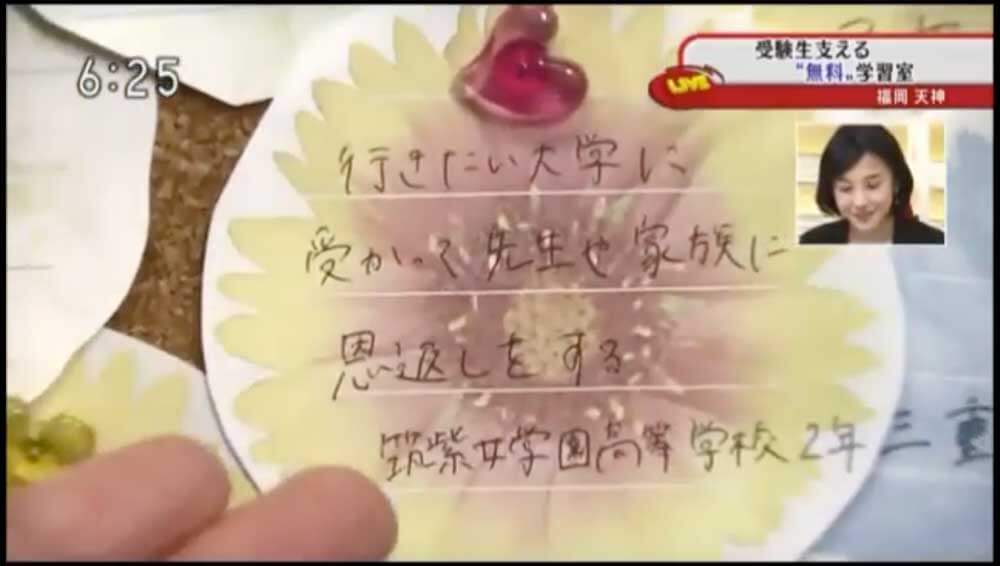 6:25
受験生支える
"無料"学習室
LIVE
福岡 天神
行きたい大学に
受かって先生や家族に
恩返しをする
筑紫女学園高等学校2年三重